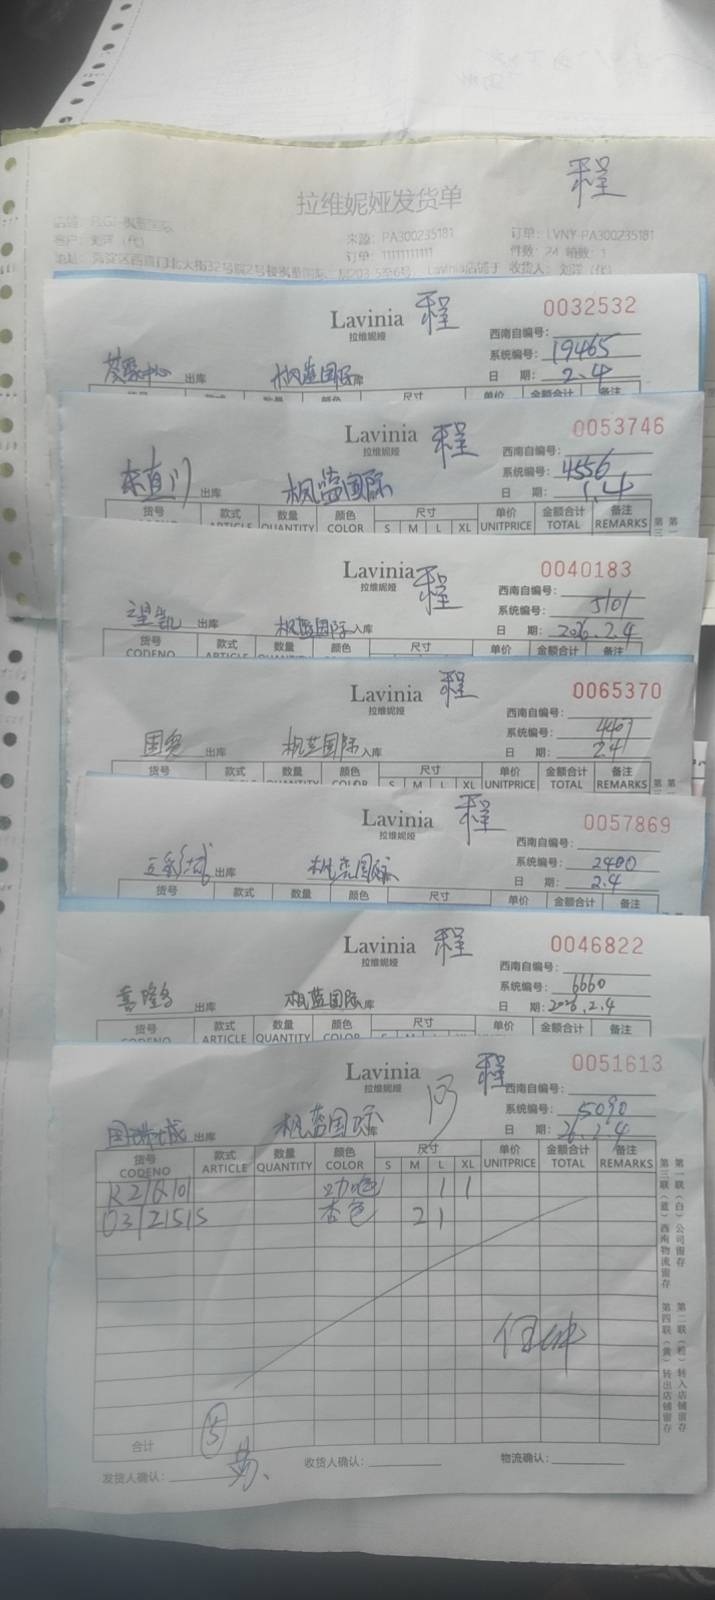 程
拉维妮娅发货单
来源: PA300235181 订单: LVNY-PA300235181
客户: 刘洋（代） 订单: 11111111111 件数: 24 箱数: 1
Lavinia店铺于 收货人: 刘洋（代）
Lavinia 程 0032532
拉维妮娅
西南自编号:
系统编号: 19465
出库 枫蓝国际 库
日 期: 2.4
款式 数量 颜色 尺寸 单价 金额合计 备注
Lavinia 程 0053746
拉维妮娅
西南自编号:
系统编号: 4556
东直门 出库 枫蓝国际
日 期: 1.4
货号 款式 数量 颜色 尺寸 单价 金额合计 备注
ARTICLE QUANTITY COLOR S M L XL UNITPRICE TOTAL REMARKS
Lavinia 程 0040183
拉维妮娅
西南自编号:
系统编号: 5101
望凯 出库 枫蓝国际 入库
日 期: 2026.2.4
货号 款式 数量 颜色 尺寸 单价 金额合计 备注
CODENO
Lavinia 程 0065370
拉维妮娅
西南自编号:
系统编号: 4467
国贸 出库 枫蓝国际 入库
日 期: 2.4
货号 款式 数量 颜色 尺寸 单价 金额合计 备注
ARTICLE QUANTITY COLOR S M L XL UNITPRICE TOTAL REMARKS
Lavinia 程 0057869
拉维妮娅
西南自编号:
系统编号: 2400
五彩城 出库 枫蓝国际
日 期: 2.4
货号 款式 数量 颜色 尺寸 单价 金额合计 备注
Lavinia 程 0046822
拉维妮娅
西南自编号:
系统编号: 6660
喜隆多 出库 枫蓝国际 库
日 期: 2026.2.4
货号 款式 数量 颜色 尺寸 单价 金额合计 备注
ARTICLE QUANTITY COLOR
Lavinia 程 0051613
拉维妮娅
西南自编号:
系统编号: 5090
国瑞城 出库 枫蓝国际 库
日 期: 26.2.4
货号 款式 数量 颜色 尺寸 单价 金额合计 备注
CODENO ARTICLE QUANTITY COLOR S M L XL UNITPRICE TOTAL REMARKS
R2/6101 咖色 1 1
03/2515 杏色 2 1
第一联（白）公司留存
第三联（蓝）西南物流留存
第二联（红）转入店铺留存
第四联（黄）转出店铺留存
合计 5
发货人确认: 收货人确认: 物流确认: